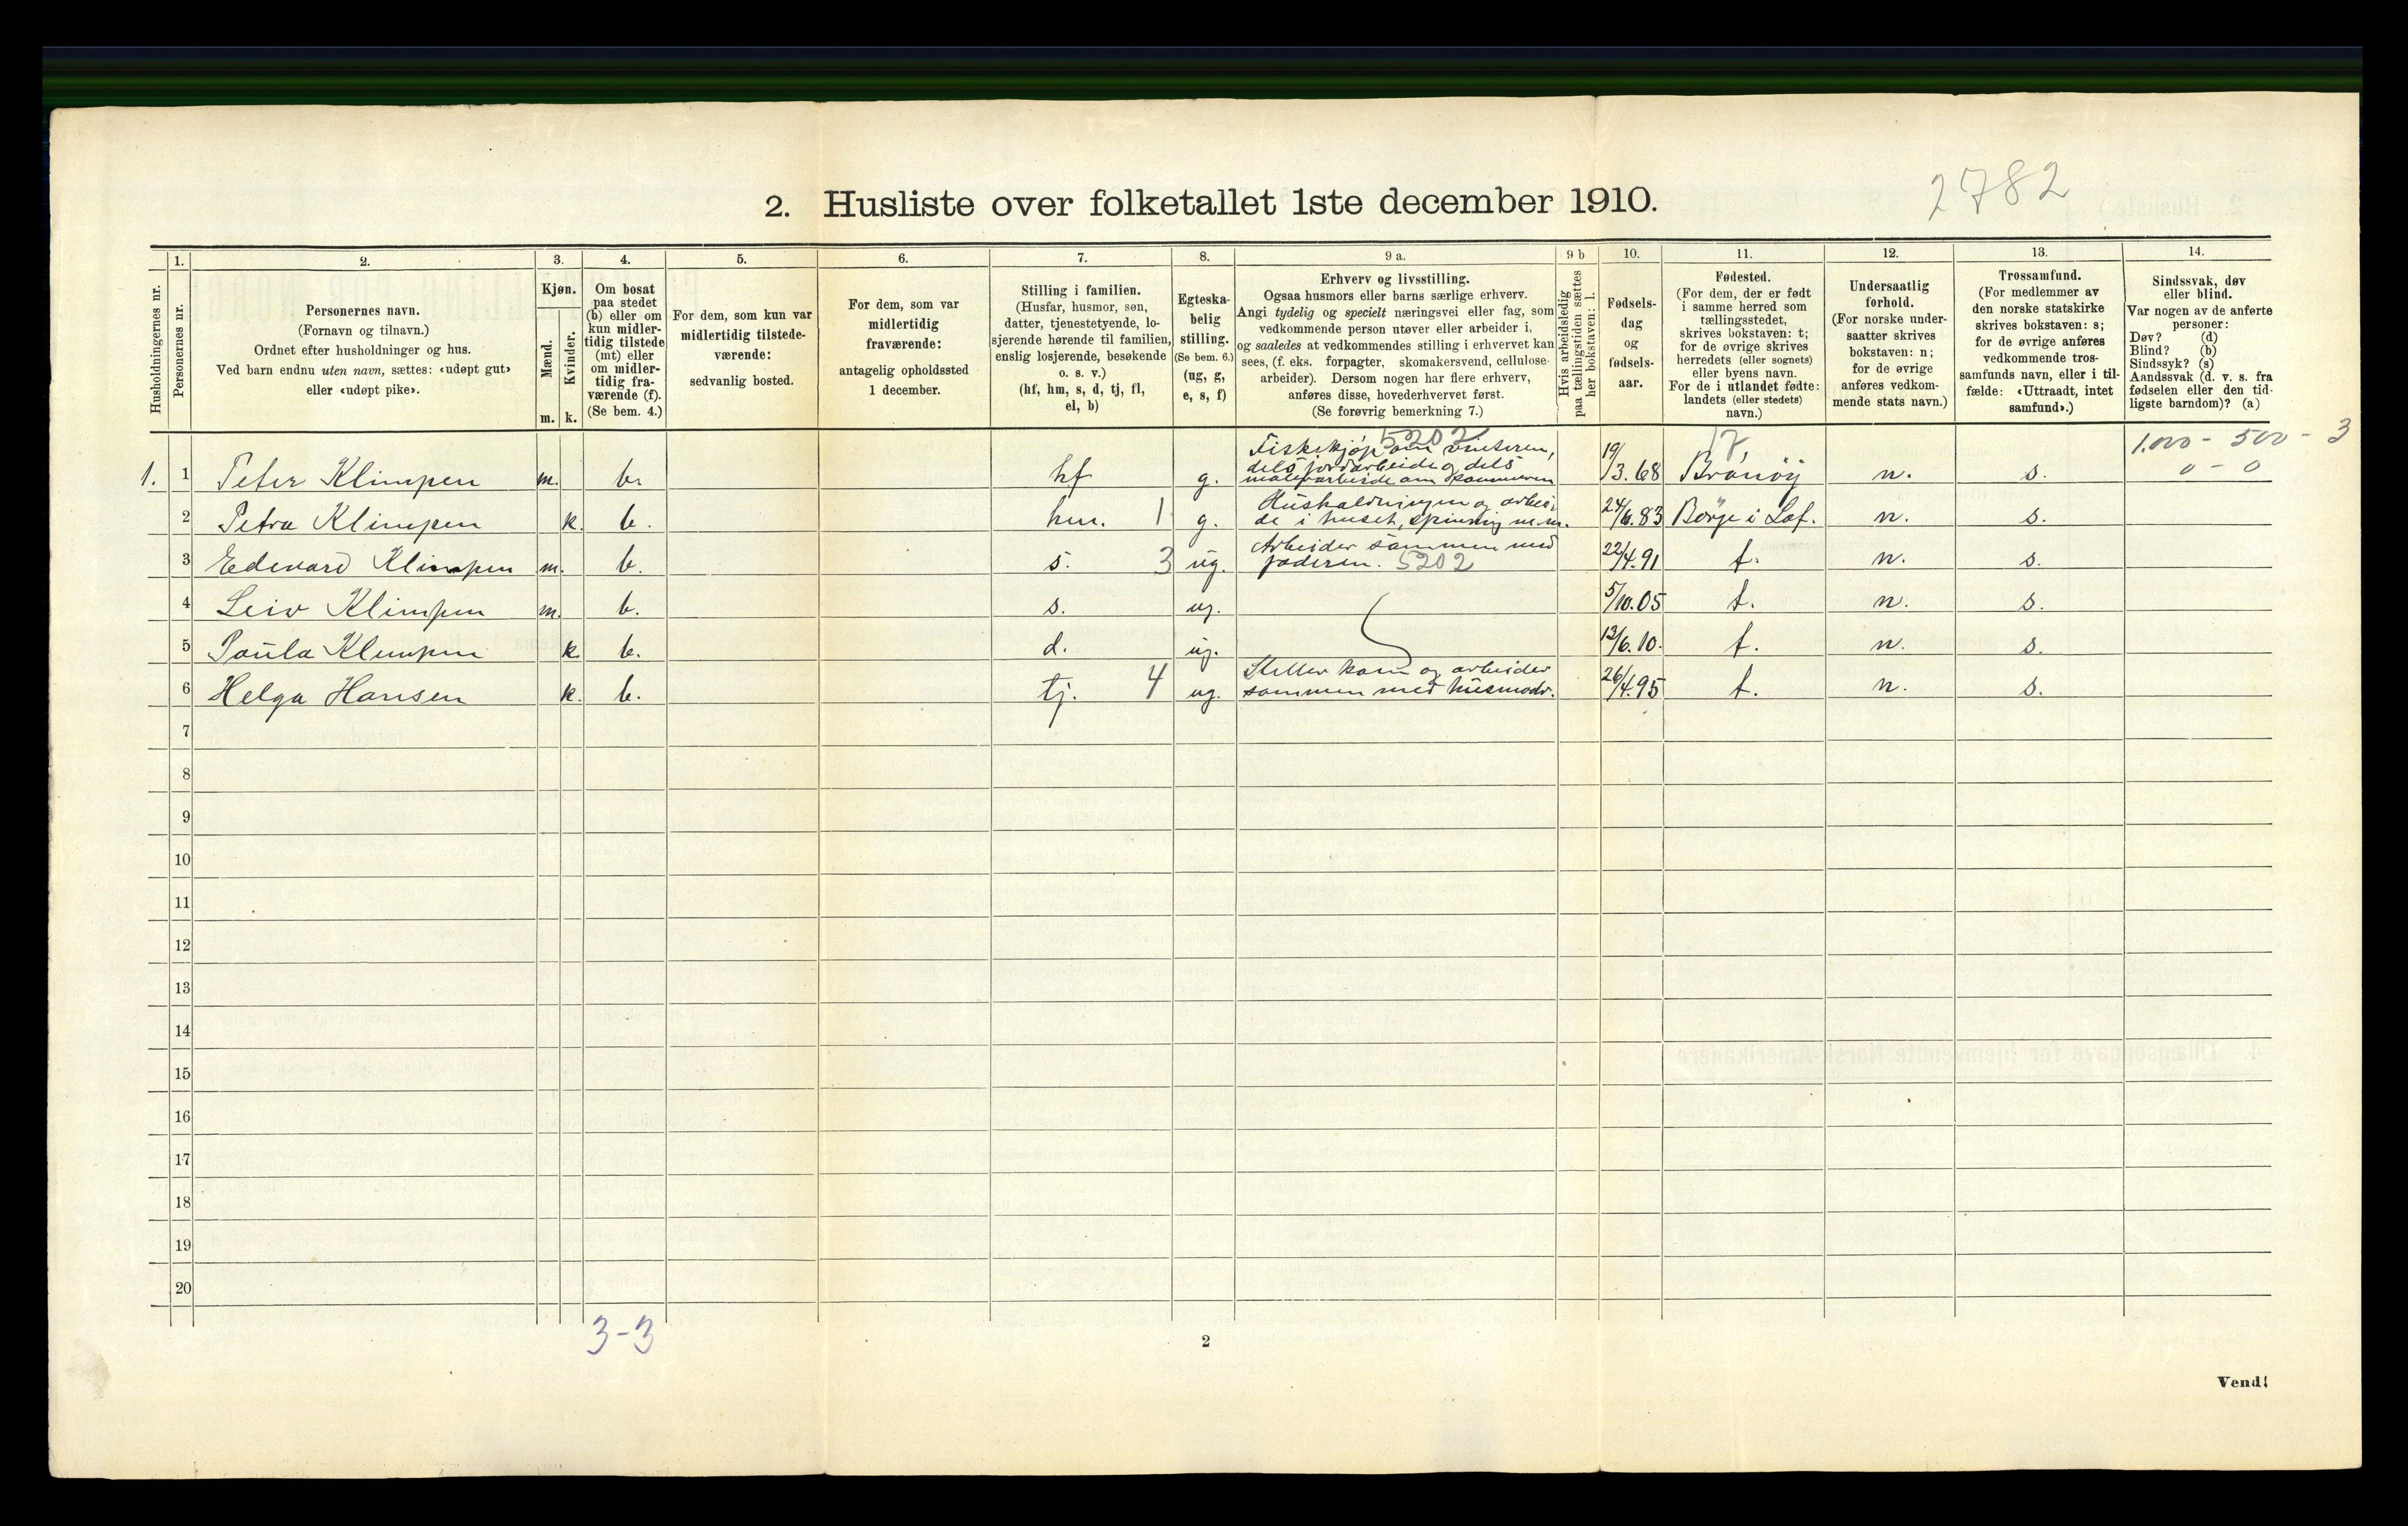 2782
2. Husliste over folketallet 1ste december 1910.
Husholdningernes nr.
1.
Personernes nr.
2.
Personernes navn.
(Fornavn og tilnavn.)
Ordnet efter husholdninger og hus.
Ved barn endnu uten navn, sættes: «udøpt gut»
eller «udøpt pike».
3.
Kjøn.
Mænd.
Kvinder.
m. k.
4.
Om bosat
paa stedet
(b) eller om
kun midler-
tidig tilstede
(mt) eller
om midler-
tidig fra-
værende (f).
(Se bem. 4.)
5.
For dem, som kun var
midlertidig tilstede-
værende:
sedvanlig bosted.
6.
For dem, som var
midlertidig
fraværende:
antagelig opholdssted
1 december.
7.
Stilling i familien.
(Husfar, husmor, søn,
datter, tjenestetyende, lo-
sjerende hørende til familien,
enslig losjerende, besøkende
o. s. v.)
(hf, hm, s, d, tj, fl,
el, b)
8.
Egteska-
belig
stilling.
(Se bem. 6.)
(ug, g,
e, s, f)
9 a.
Erhverv og livsstilling.
Ogsaa husmors eller barns særlige erhverv.
Angi tydelig og specielt næringsvei eller fag, som
vedkommende person utøver eller arbeider i,
og saaledes at vedkommendes stilling i erhvervet kan
sees, (f. eks. forpagter, skomakersvend, cellulose-
arbeider). Dersom nogen har flere erhverv,
anføres disse, hovederhvervet først.
(Se forøvrig bemerkning 7.)
9 b
Hvis arbeidsledig
paa tællingstiden sættes
her bokstaven: l.
10.
Fødsels-
dag
og
fødsels-
aar.
11.
Fødested.
(For dem, der er født
i samme herred som
tællingsstedet,
skrives bokstaven: t;
for de øvrige skrives
herredets (eller sognets)
eller byens navn.
For de i utlandet fødte:
landets (eller stedets)
navn.)
12.
Undersaatlig
forhold.
(For norske under-
saatter skrives
bokstaven: n;
for de øvrige
anføres vedkom-
mende stats navn.)
13.
Trossamfund.
(For medlemmer av
den norske statskirke
skrives bokstaven: s;
for de øvrige anføres
vedkommende tros-
samfunds navn, eller i til-
fælde: «Uttraadt, intet
samfund».)
14.
Sindssvak, døv
eller blind.
Var nogen av de anførte
personer:
Døv? (d)
Blind? (b)
Sindssyk? (s)
Aandssvak (d. v. s. fra
fødselen eller den tid-
ligste barndom)? (a)
5202 17 1.000 - 500 - 3
0 - 0
1. 1 Peter Klimpen m. b. hf g. Fiskekjøp om vinteren,
dels jordarbeide og dels
malerarbeide om sommeren 19/3.68 Brønøy n. s.
2 Petra Klimpen k. b. hm. 1 g. Husholdningen og arbei-
de i huset, spinning m.m. 24/6.83 Borge i Lof. n. s.
3 Edevard Klimpen m. b. s. 3 ug. Arbeider sammen med
faderen. 5202 22/4.91 t. n. s.
4 Leiv Klimpen m. b. s. ug. 5/10.05 t. n. s.
5 Paula Klimpen k b. d. ug. 13/6.10. t. n. s.
6 Helga Hansen k. b. tj. 4 ug. Steller barn og arbeider
sammen med husmodr. 26/4.95 t. n. s.
7
8
9
10
11
12
13
14
15
16
17
18
19
20
3-3
2
Vend!